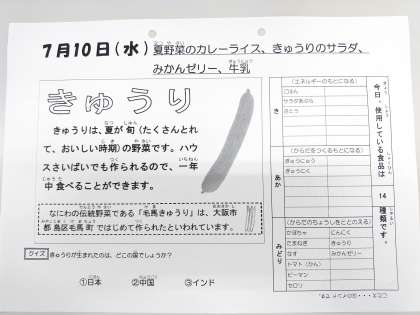 7月10日(水) 夏野菜のカレーライス、きゅうりのサラダ、
みかんゼリー、牛乳
きゅうり
きゅうりは、夏が旬(たくさんとれ
て、おいしい時期)の野菜です。ハウ
スさいばいでも作られるので、一年
中食べることができます。
なにわの伝統野菜である「毛馬きゅうり」は、大阪市
都島区毛馬町ではじめて作られたといわれています。
クイズ きゅうりが生まれたのは、どこの国でしょうか?
①日本 ②中国 ③インド
今日、使用している食品は 14 種類です。
き
(エネルギーのもとになる)
ごはん
サラダあぶら
さとう
あか
(からだをつくるもとになる)
ぎゅうにゅう
ぎゅうにく
みどり
(からだのちょうしをととのえる)
かぼちゃ にんにく
たまねぎ きゅうり
なす みかんゼリー
トマト(かん)
ピーマン
セロリ